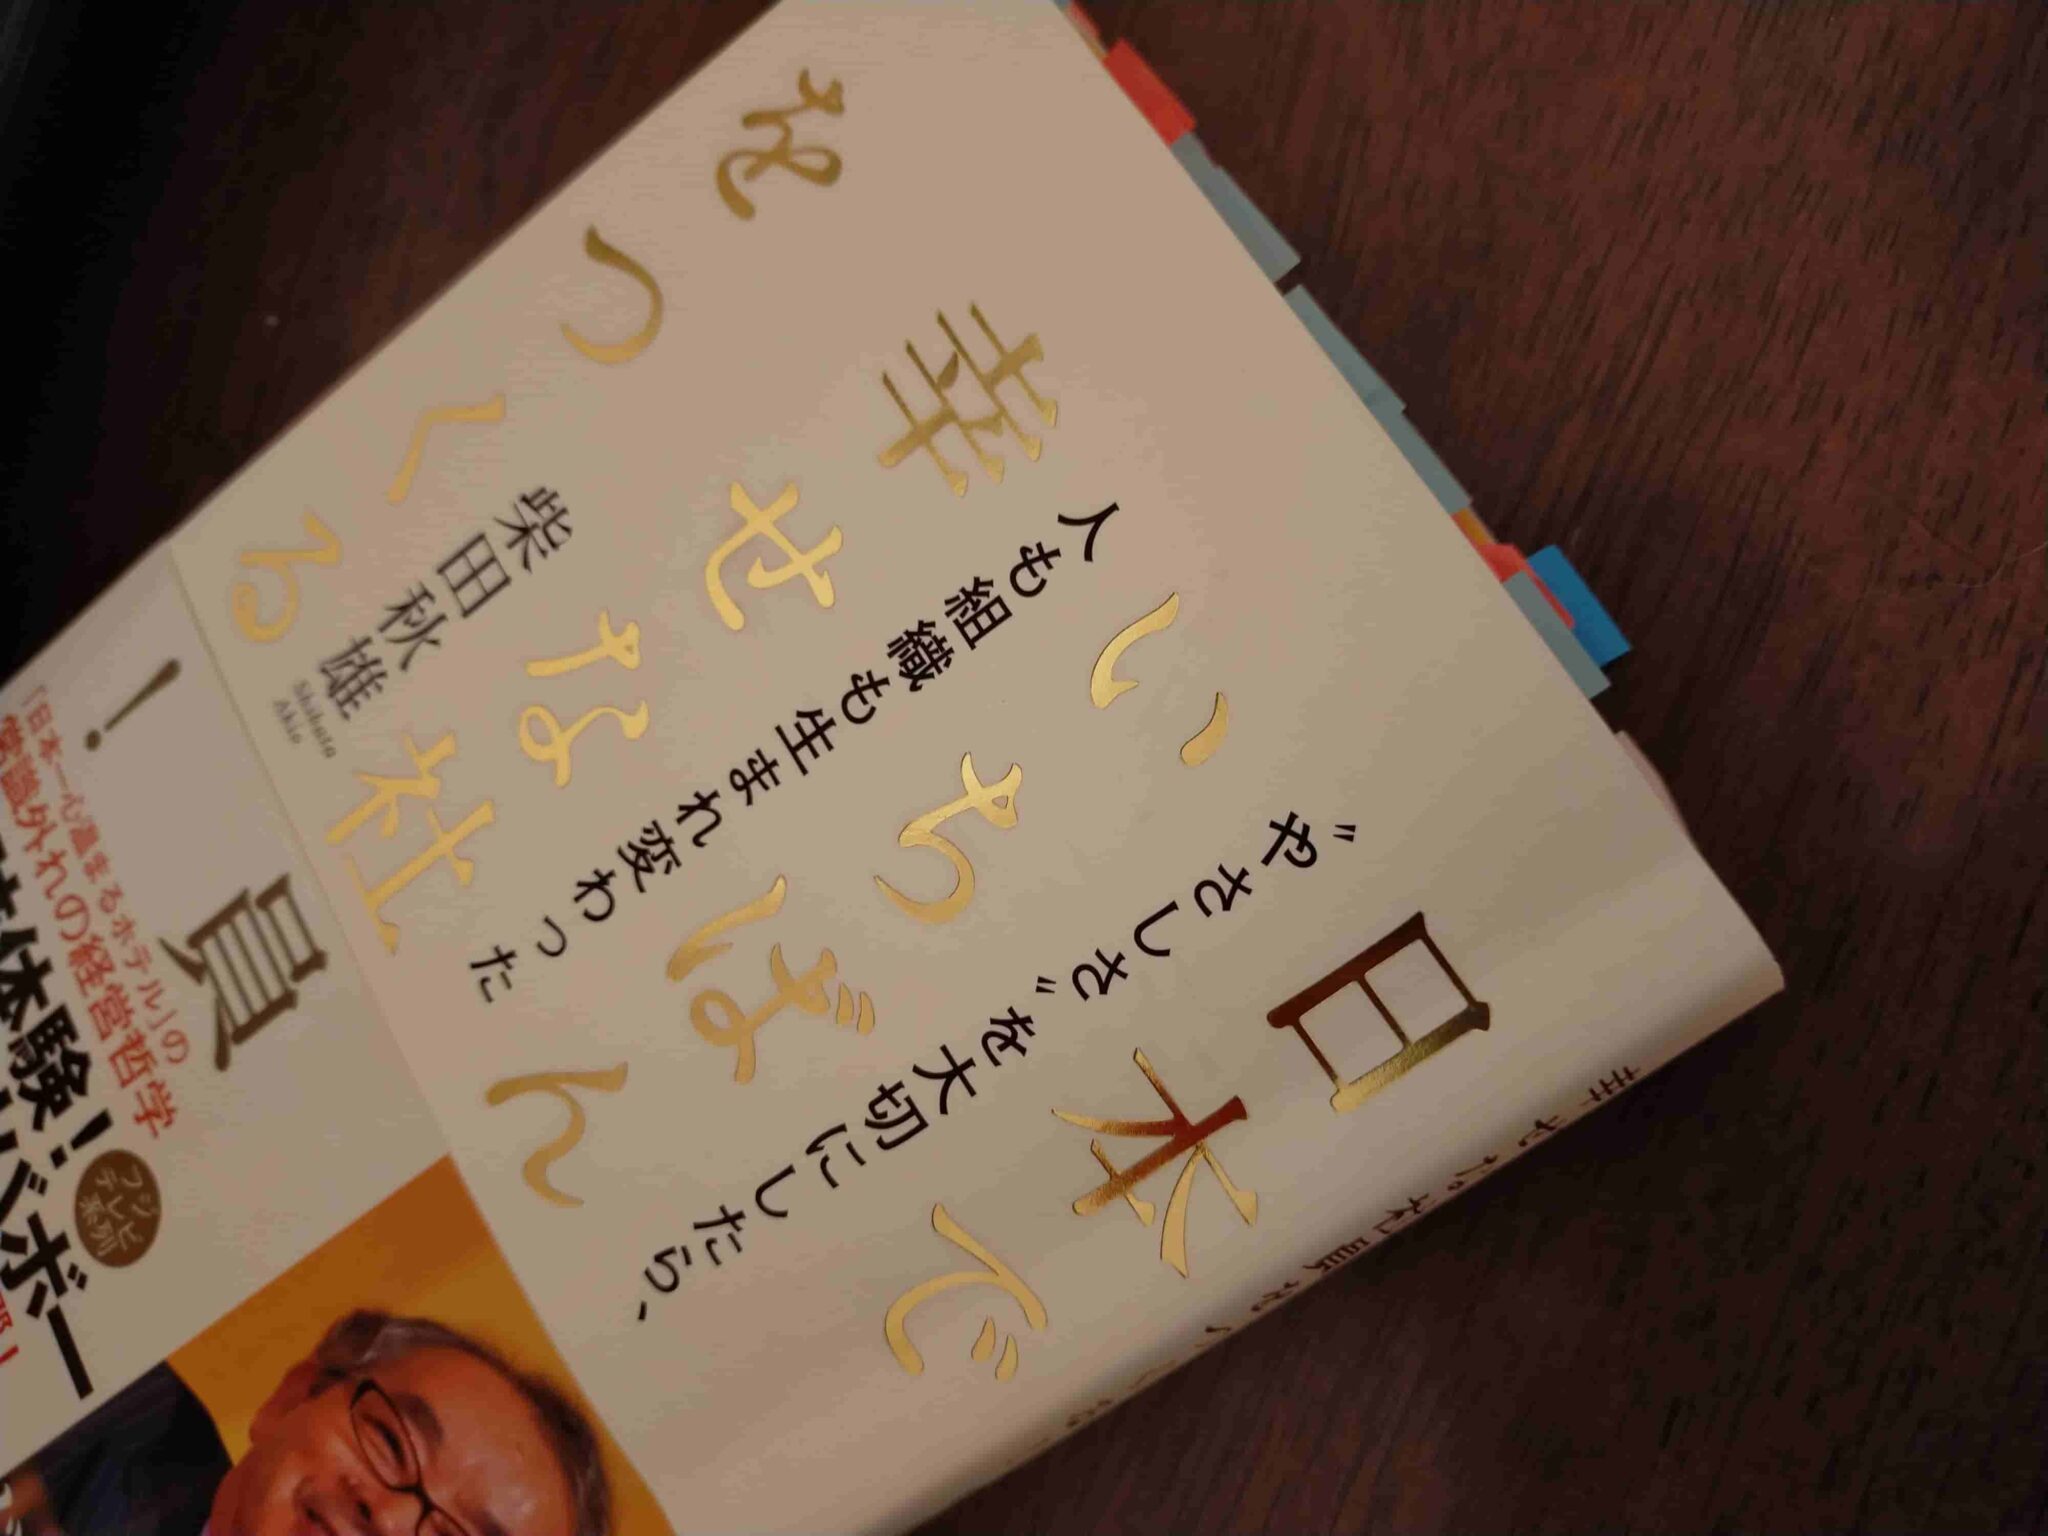 日本で
いちばん
幸せな社員
をつくる!
“やさしさ”を大切にしたら、
人も組織も生まれ変わった
柴田秋雄
Shibata
Akio
「日本一心温まるホテル」の
常識外れの経営哲学
体験!
フジ
テレビ
系列
バボー
幸せな社員をつくる